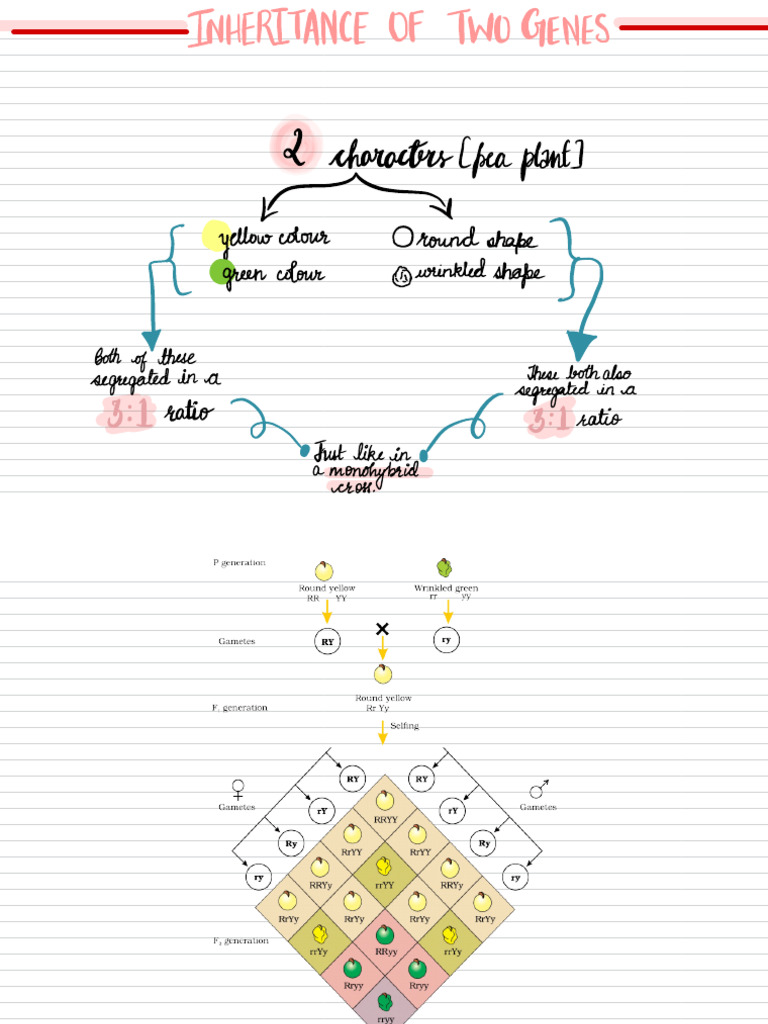 INHERITANCE OF TWO GENES
2 characters [pea plant]
yellow colour
green colour
round shape
wrinkled shape
Both of these
segregated in a
3:1 ratio
These both also
segregated in a
3:1 ratio
Just like in
a monohybrid
cross.
P generation
Round yellow
RR YY
Wrinkled green
rr yy
Gametes
RY
×
ry
Round yellow
Rr Yy
F₁ generation
Selfing
♀
Gametes
♂
Gametes
RY
RY
rY
rY
Ry
Ry
ry
ry
RRYY
RrYY
RrYY
RRYy
rrYY
RRYy
RrYy
RrYy
RrYy
RrYy
F₂ generation
rrYy
RRyy
rrYy
Rryy
Rryy
rryy